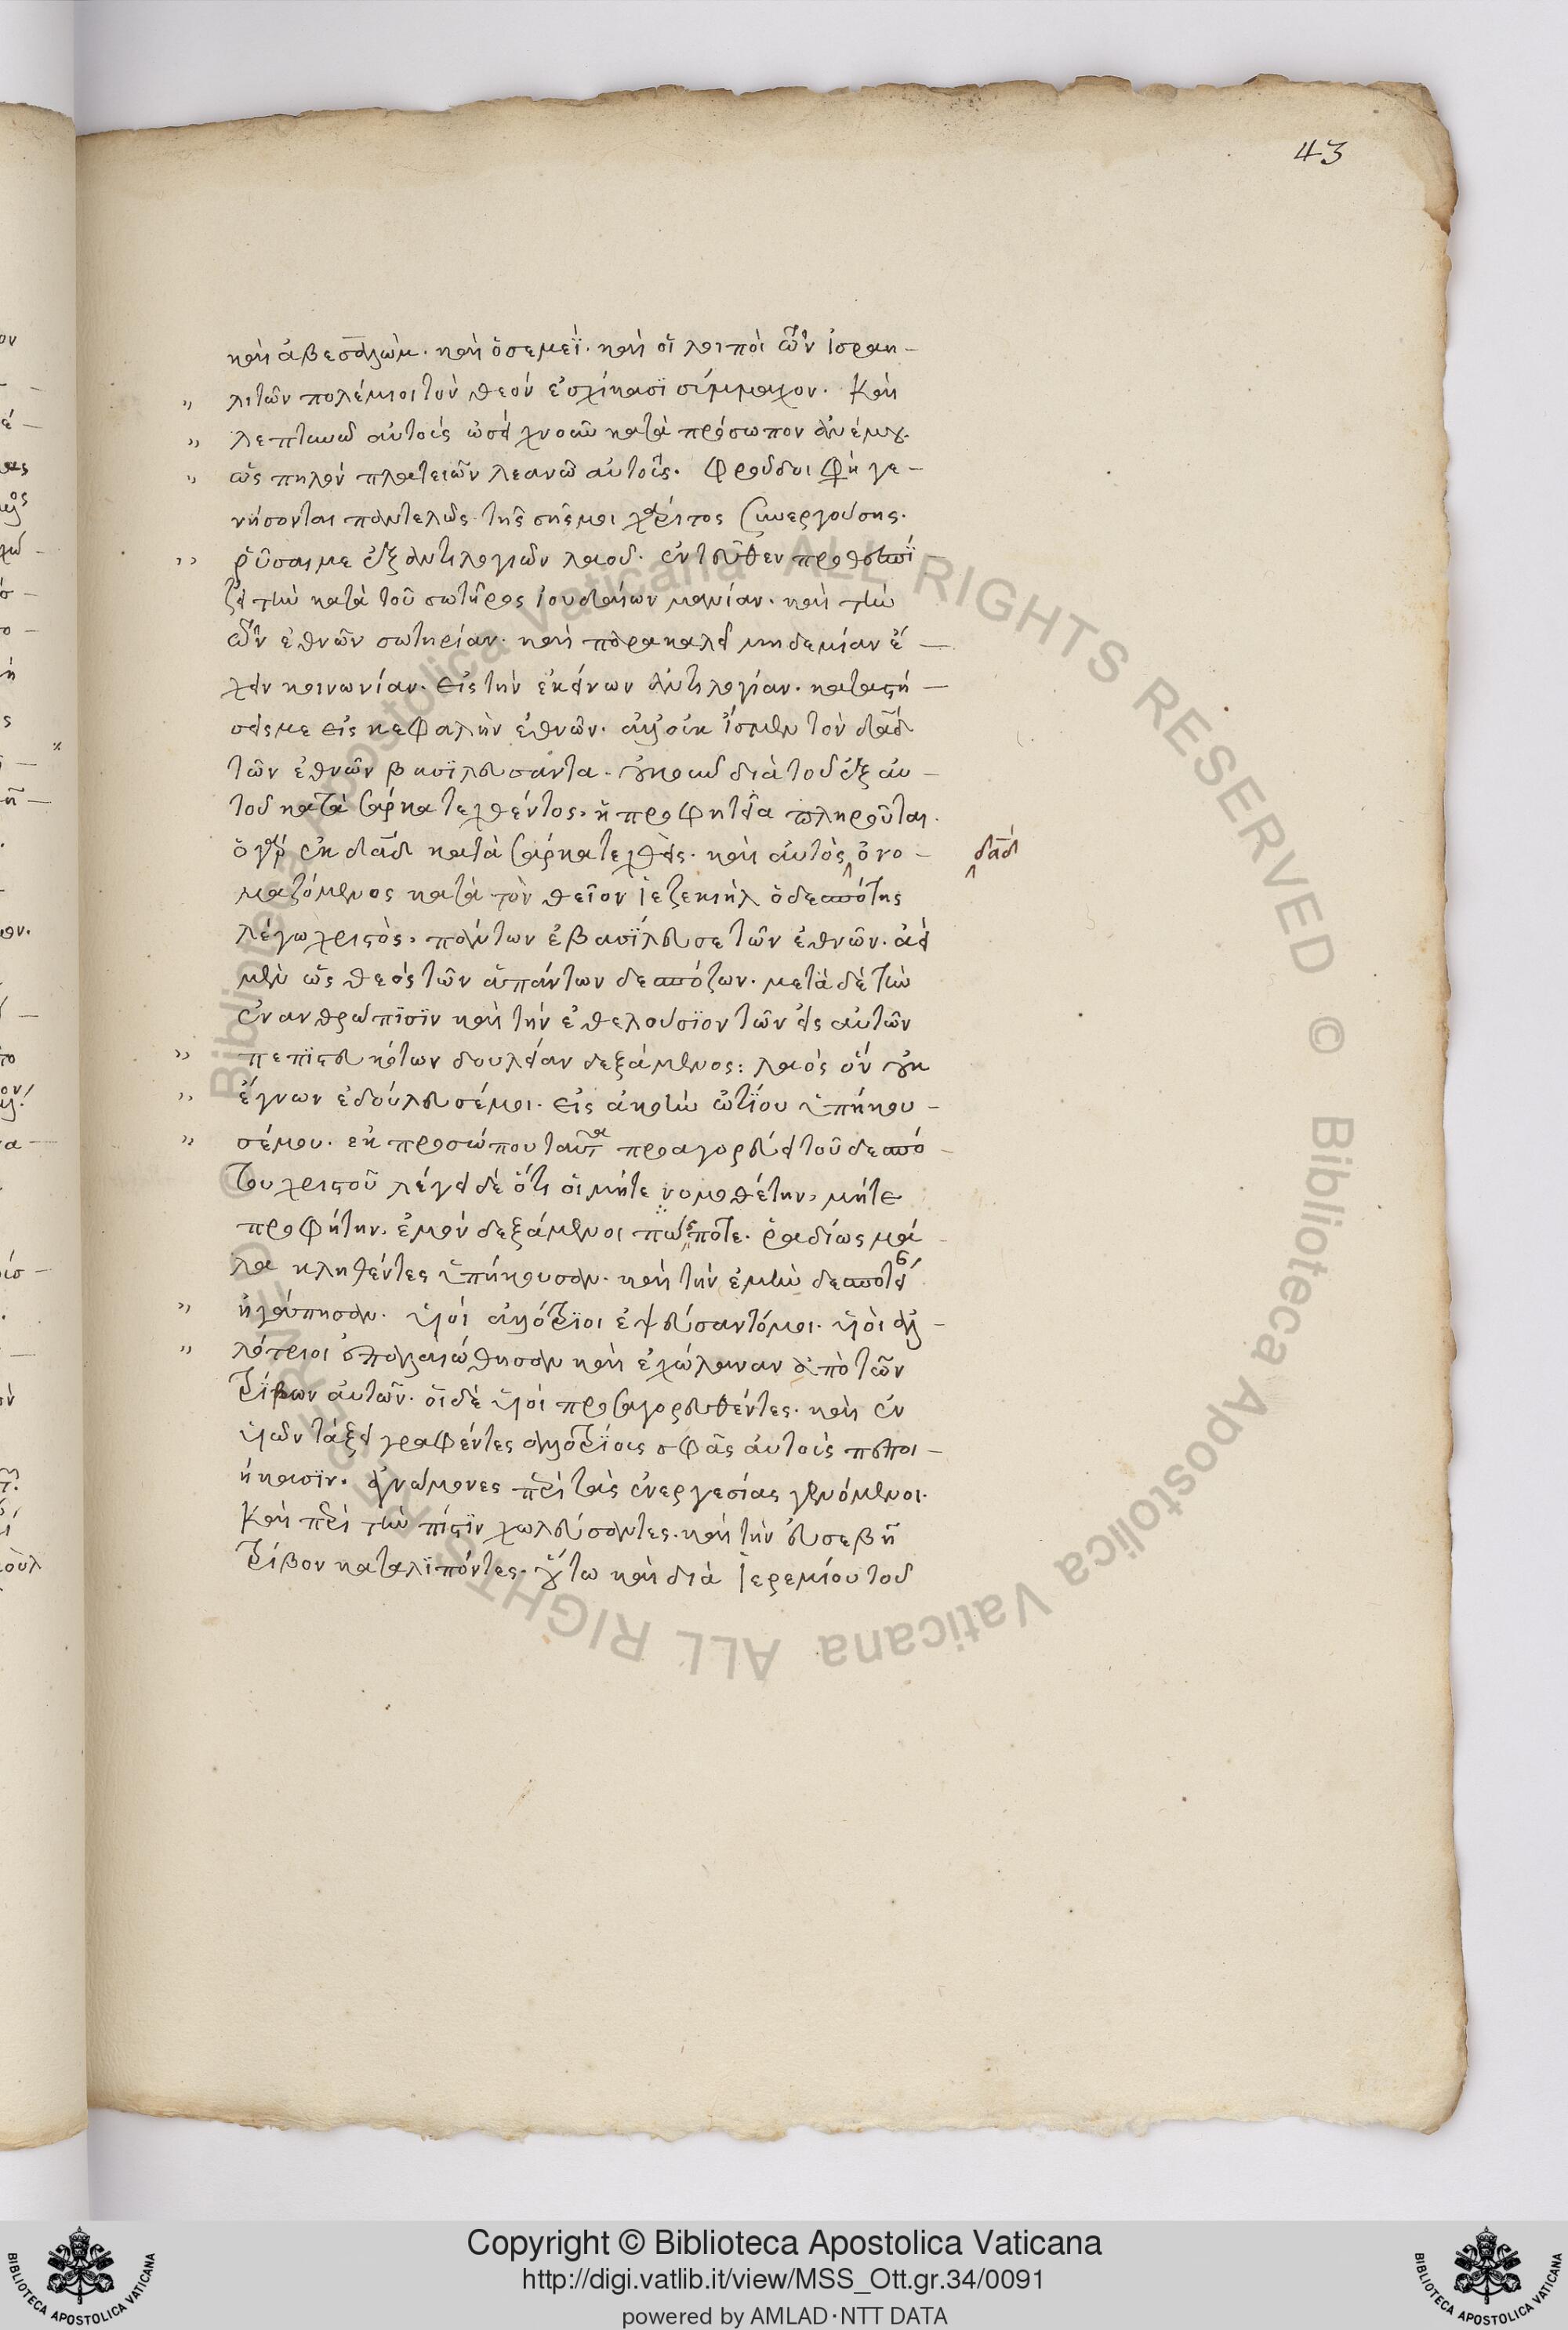 43
καὶ ἀβεσσαλώμ. καὶ ὁ σεμεΐ. καὶ οἱ λοιποὶ τῶν ἰσραη-
λιτῶν πολέμιοι τὸν θεὸν ἐσχήκασι σύμμαχον. Καὶ
λεπτυνῶ αὐτοὺς ὡσεὶ χνοῦν κατὰ πρόσωπον ἀνέμου.
ὡς πηλὸν πλατειῶν λεανῶ αὐτούς. φροῦδοι φησὶ γε-
νήσονται παντελῶς τῆς σῆς μοι χάριτος συνεργούσης.
ῥῦσαι με ἐξ ἀντιλογιῶν λαοῦ. ἐντεῦθεν προθεσπί
ζει τὴν κατὰ τοῦ σωτῆρος ἰουδαίων μανίαν. καὶ τὴν
τῶν ἐθνῶν σωτηρίαν. καὶ παρακαλεῖ μηδεμίαν ἔ-
χειν κοινωνίαν. εἰς τὴν ἐκείνων ἀντιλογίαν. καταστή-
σεις με εἰς κεφαλὴν ἐθνῶν. ἀλλ' οὐκ ἴσμεν τὸν δαδ
τῶν ἐθνῶν βασϊλεύσαντα. οὐκοῦν διὰ τοῦ ἐξ αὐ-
τοῦ κατὰ σάρκα τεχθέντος. ἡ προφητεία πληροῦται.
ὁ γὰρ ἐκ δαδ κατὰ σάρκα τεχθεὶς. καὶ αὐτὸς ὀνο-
δαδ
μαζόμενος κατὰ τὸν θεῖον ἰεζεκιὴλ ὁ δεσπότης
λέγω χριστὸς. πάντων ἐβασΐλευσε τῶν ἐθνῶν. ἀεὶ
μὲν ὡς θεὸς τῶν ἁπάντων δεσπόζων. μετὰ δὲ τὴν
ἐνανθρώπϊσϊν καὶ τὴν ἐθελούσϊον τῶν εἰς αὐτῶν
πεπϊστευκότων δουλείαν δεξάμενος: λαὸς ὃν οὐκ
ἔγνων ἐδούλευσέ μοι. εἰς ἀκοὴν ὠτίου ὑπήκου-
σέ μου. ἐκ προσώπου ταῦτα προαγορεύει τοῦ δεσπό-
του χριστοῦ λέγει δὲ ὅτι οἱ μήτε νομοθέτην, μήτε
προφήτην. ἐμὸν δεξάμενοι πώποτε. ῥαδίως μά-
λα κληθέντες ὑπήκουσαν. καὶ τὴν ἐμὴν δεσποτεί
ἠγάπησαν. υἱοὶ ἀλλότριοι ἐψεύσαντό μοι. υἱοὶ ἀλ-
λότριοι ἐπαλαιώθησαν καὶ ἐχώλαναν ἀπὸ τῶν
τρϊβων αὐτῶν. οἱ δὲ υἱοὶ προσαγορευθέντες. καὶ ἐν
υἱῶν τάξει γραφέντες ἀλλοτρϊους σφᾶς αὐτοὺς πεποι-
ήκασϊν. ἀγνώμονες περὶ τὰς ἐνεργεσίας γενόμενοι.
Καὶ περὶ τὴν πίστϊν χωλεύσαντες. καὶ τὴν εὐσεβῆ
τρίβον καταλϊπόντες. οὕτω καὶ διὰ ἰερεμίου τοῦ
Copyright © Biblioteca Apostolica Vaticana
http://digi.vatlib.it/view/MSS_Ott.gr.34/0091
powered by AMLAD·NTT DATA